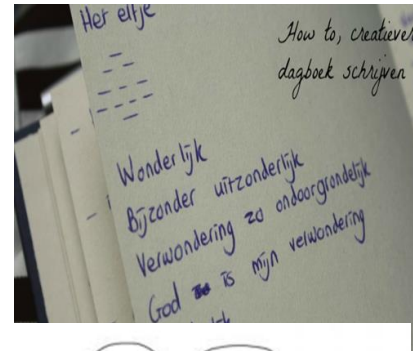 Het elfje
How to, creatiever
dagboek schrijven
Wonderlijk
Bijzonder uitzonderlijk
Verwondering zo ondoorgrondelijk
God is mijn verwondering